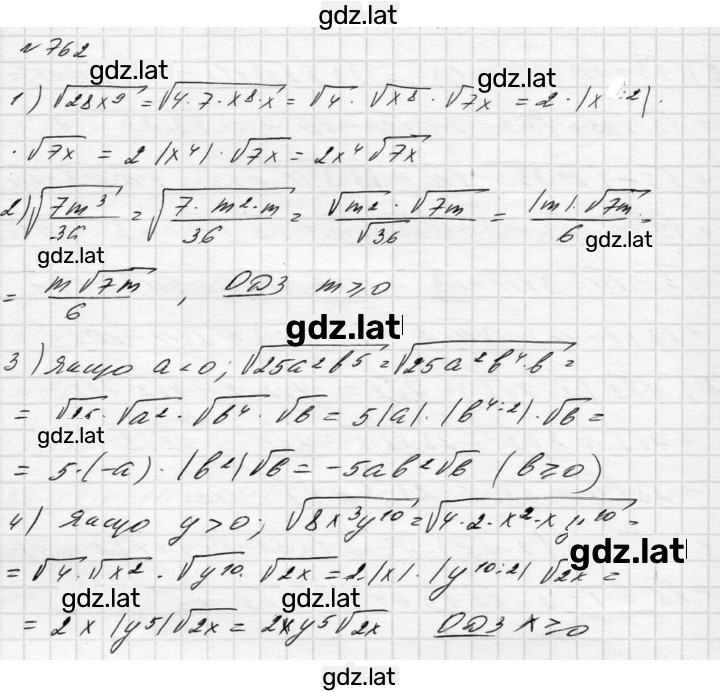 gdz.lat
№ 762
gdz.lat
gdz.lat
1) √28x⁹ = √4·7·x⁸·x = √4 · √x⁸ · √7x = 2 · |x⁸:²| ·
· √7x = 2 |x⁴| · √7x = 2x⁴ √7x
2) √(7m³/36) = √(7·m²·m/36) = √m² · √7m / √36 = |m|·√7m / 6 =
gdz.lat
gdz.lat
= m√7m / 6 , ОДЗ m ≥ 0
gdz.lat
3) якщо a < 0; √25a²b⁵ = √25a²b⁴·b =
= √25 · √a² · √b⁴ · √b = 5|a| · |b⁴:²| · √b =
gdz.lat
= 5·(-a) · |b²|√b = -5ab²√b (b ≥ 0)
4) якщо y > 0; √8x³y¹⁰ = √4·2·x²·x y¹⁰ =
gdz.lat
= √4 · √x² · √y¹⁰ · √2x = 2·|x| · |y¹⁰:²| √2x =
gdz.lat
gdz.lat
= 2x |y⁵|√2x = 2xy⁵√2x ОДЗ x ≥ 0
gdz.lat